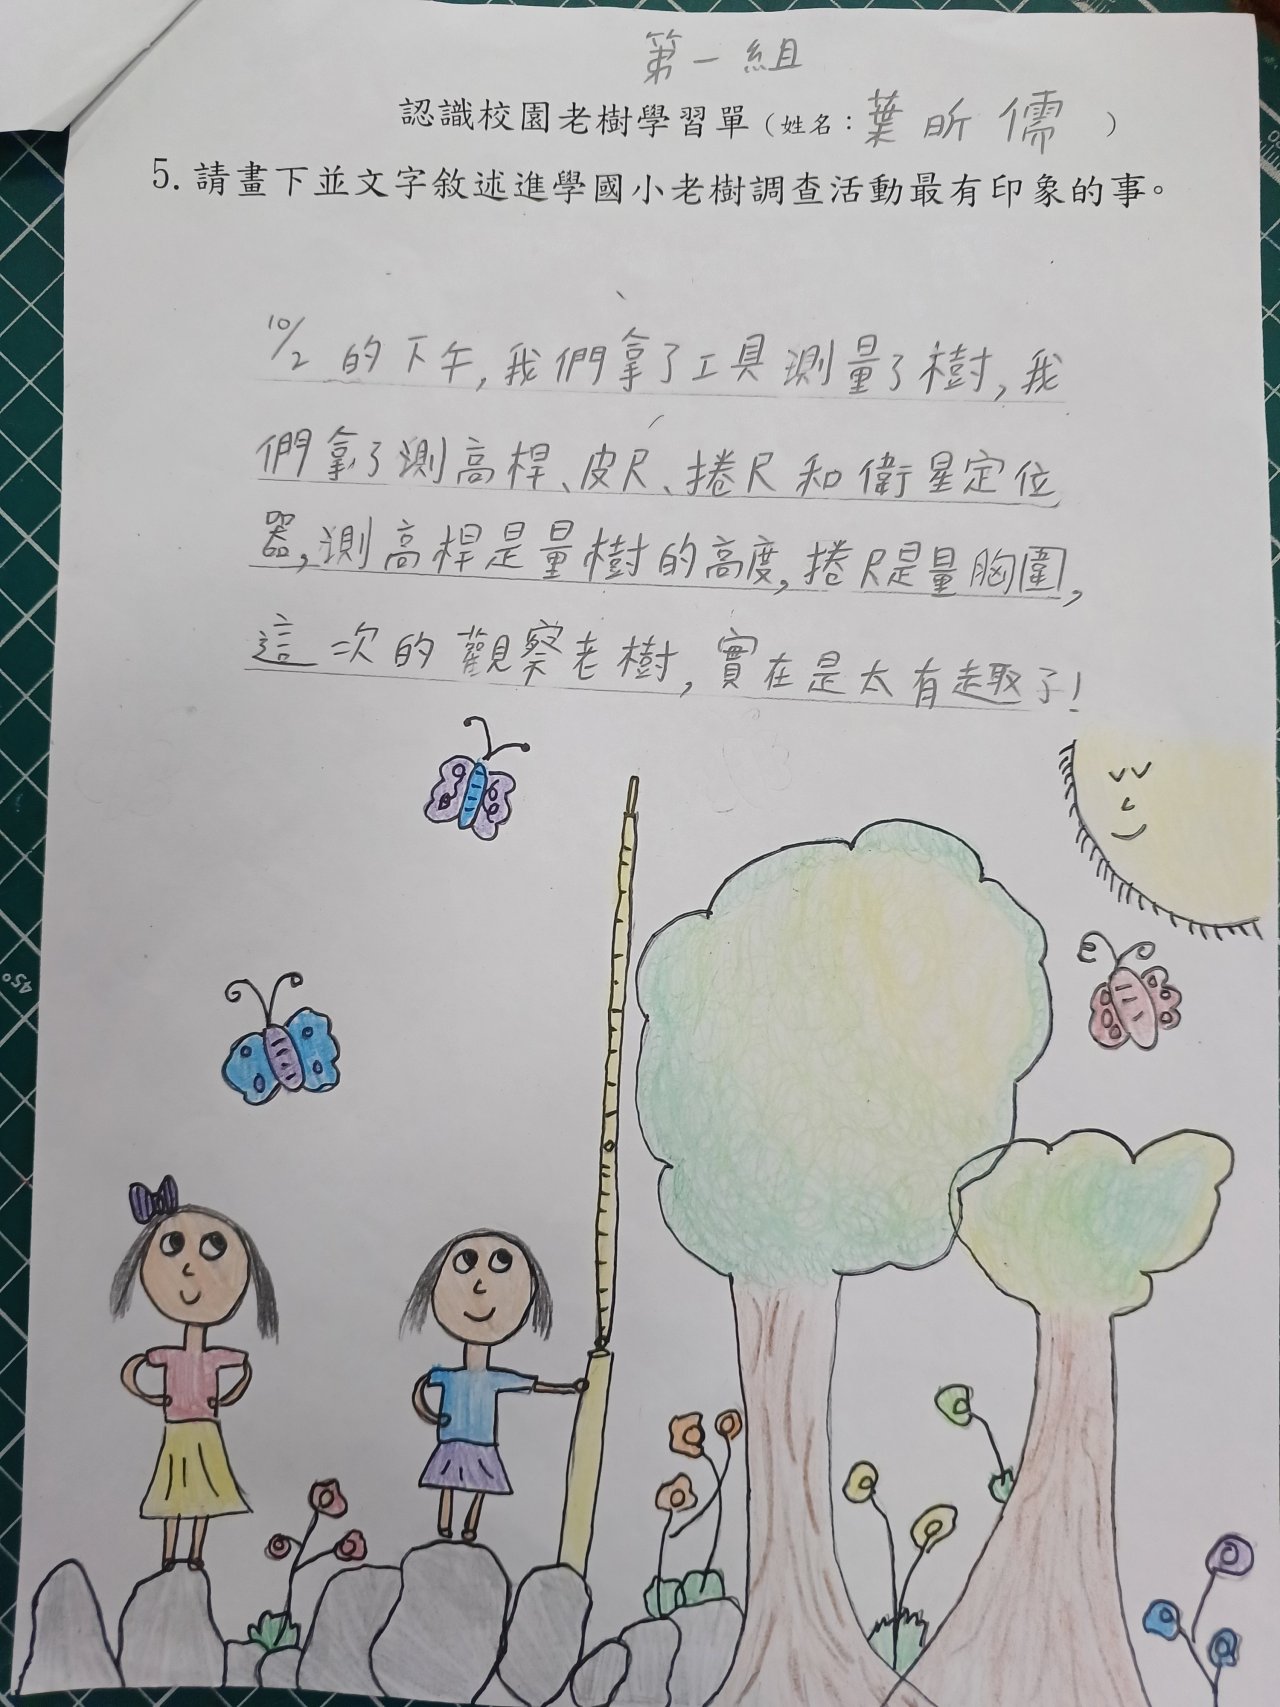 第一組
認識校園老樹學習單（姓名：葉昕儒）
5.請畫下並文字敘述進學國小老樹調查活動最有印象的事。
10/2的下午,我們拿了工具測量了樹,我
們拿了測高桿、皮尺、捲尺和衛星定位
器,測高桿是量樹的高度,捲尺是量胸圍,
這次的觀察老樹,實在是太有趣了!
45°